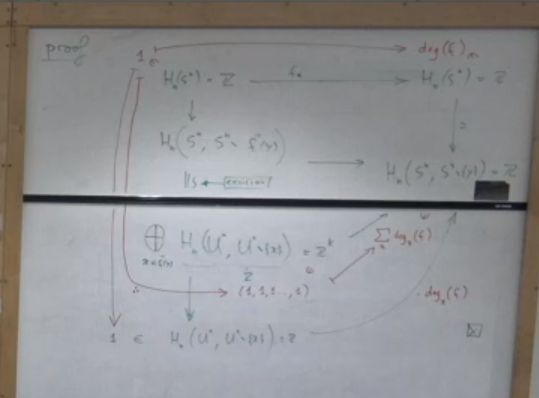 proof
1 ∈ deg(f) ∈
Hₙ(Sⁿ) = ℤ f∗ Hₙ(Sⁿ) = ℤ
=
Hₙ(Sⁿ, Sⁿ∖f⁻¹(y))
Hₙ(Sⁿ, Sⁿ∖{y}) = ℤ
excision
⊕ Hₙ(Uˣ, Uˣ∖{x}) = ℤᵏ Σₓ degₓ(f)
x∈f⁻¹(y) ℤ
(1, 1, 1..., 1) degₓ(f)
1 ∈ Hₙ(Uˣ, Uˣ∖{x}) = ℤ